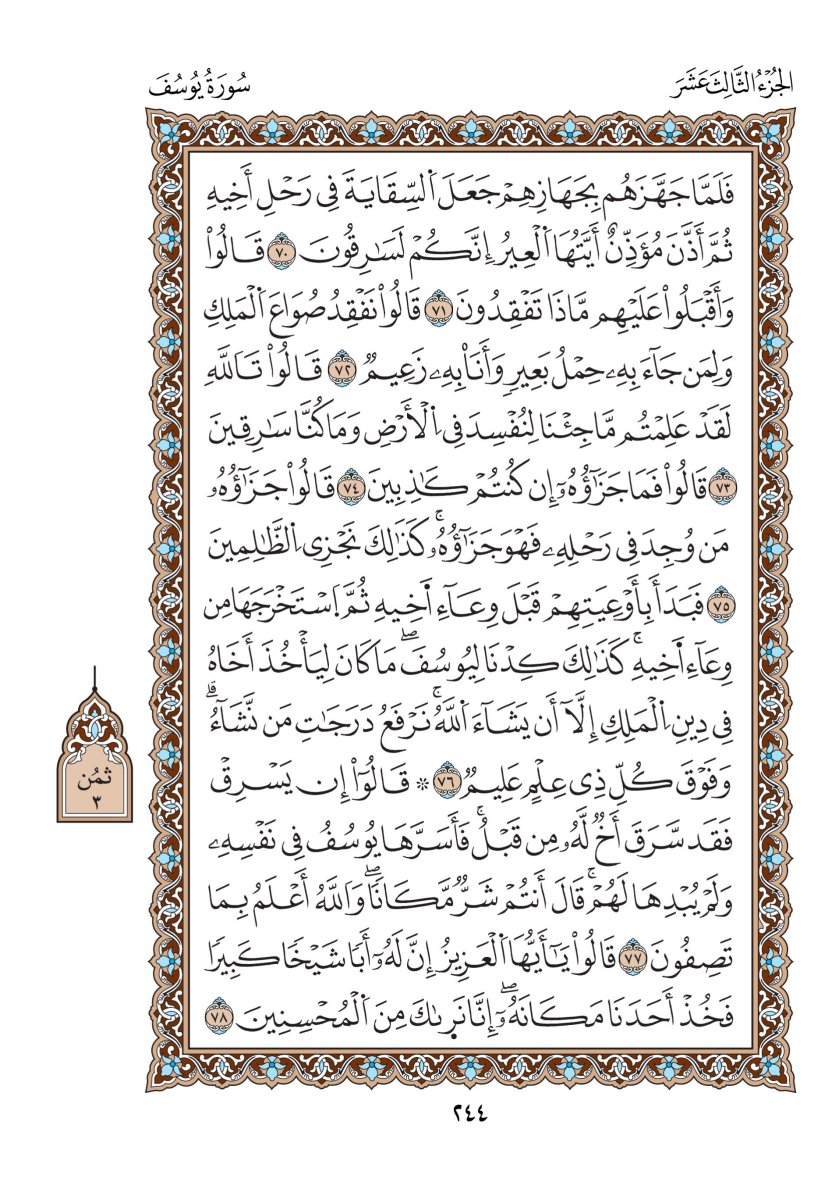 الجُزْءُ الثَّالِثَ عَشَرَ
سُورَةُ يُوسُفَ
فَلَمَّا جَهَّزَهُم بِجَهَازِهِمْ جَعَلَ اَ۬لسِّقَايَةَ فِي رَحْلِ أَخِيهِ
ثُمَّ أَذَّنَ مُؤَذِّنٌ أَيَّتُهَا اَ۬لْعِيرُ إِنَّكُمْ لَسَٰرِقُونَ ٧٠ قَالُواْ
وَأَقْبَلُواْ عَلَيْهِم مَّاذَا تَفْقِدُونَ ٧١ قَالُواْ نَفْقِدُ صُوَاعَ اَ۬لْمَلِكِ
وَلِمَن جَآءَ بِهِۦ حِمْلُ بَعِيرٖ وَأَنَا۠ بِهِۦ زَعِيمٞ ٧٢ قَالُواْ تَاللَّهِ
لَقَدْ عَلِمْتُم مَّا جِئْنَا لِنُفْسِدَ فِي اِ۬لْأَرْضِ وَمَا كُنَّا سَٰرِقِينَ
٧٣ قَالُواْ فَمَا جَزَٰٓؤُهُۥٓ إِن كُنتُمْ كَٰذِبِينَ ٧٤ قَالُواْ جَزَٰٓؤُهُۥ
مَن وُجِدَ فِي رَحْلِهِۦ فَهُوَ جَزَٰٓؤُهُۥۚ كَذَٰلِكَ نَجْزِي اِ۬لظَّٰلِمِينَ
٧٥ فَبَدَأَ بِأَوْعِيَتِهِمْ قَبْلَ وِعَآءِ اَ۬خِيهِ ثُمَّ اَ۪سْتَخْرَجَهَا مِن
وِعَآءِ اَ۬خِيهِۚ كَذَٰلِكَ كِدْنَا لِيُوسُفَۖ مَا كَانَ لِيَأْخُذَ أَخَاهُ
فِي دِينِ اِ۬لْمَلِكِ إِلَّآ أَن يَشَآءَ اَ۬للَّهُۚ نَرْفَعُ دَرَجَٰتِ مَن نَّشَآءُۗ
وَفَوْقَ كُلِّ ذِي عِلْمٍ عَلِيمٞ ٧٦ ۞ قَالُوٓاْ إِن يَسْرِقْ
ثُمُن
٣
فَقَد سَّرَقَ أَخٞ لَّهُۥ مِن قَبْلُۚ فَأَسَرَّهَا يُوسُفُ فِي نَفْسِهِۦ
وَلَمْ يُبْدِهَا لَهُمْۚ قَالَ أَنتُمْ شَرّٞ مَّكَانٗاۖ وَاللَّهُ أَعْلَمُ بِمَا
تَصِفُونَ ٧٧ قَالُواْ يَٰٓأَيُّهَا اَ۬لْعَزِيزُ إِنَّ لَهُۥٓ أَبٗا شَيْخٗا كَبِيرٗا
فَخُذْ أَحَدَنَا مَكَانَهُۥٓۖ إِنَّا نَر۪ىٰكَ مِنَ اَ۬لْمُحْسِنِينَ ٧٨
٢٤٤